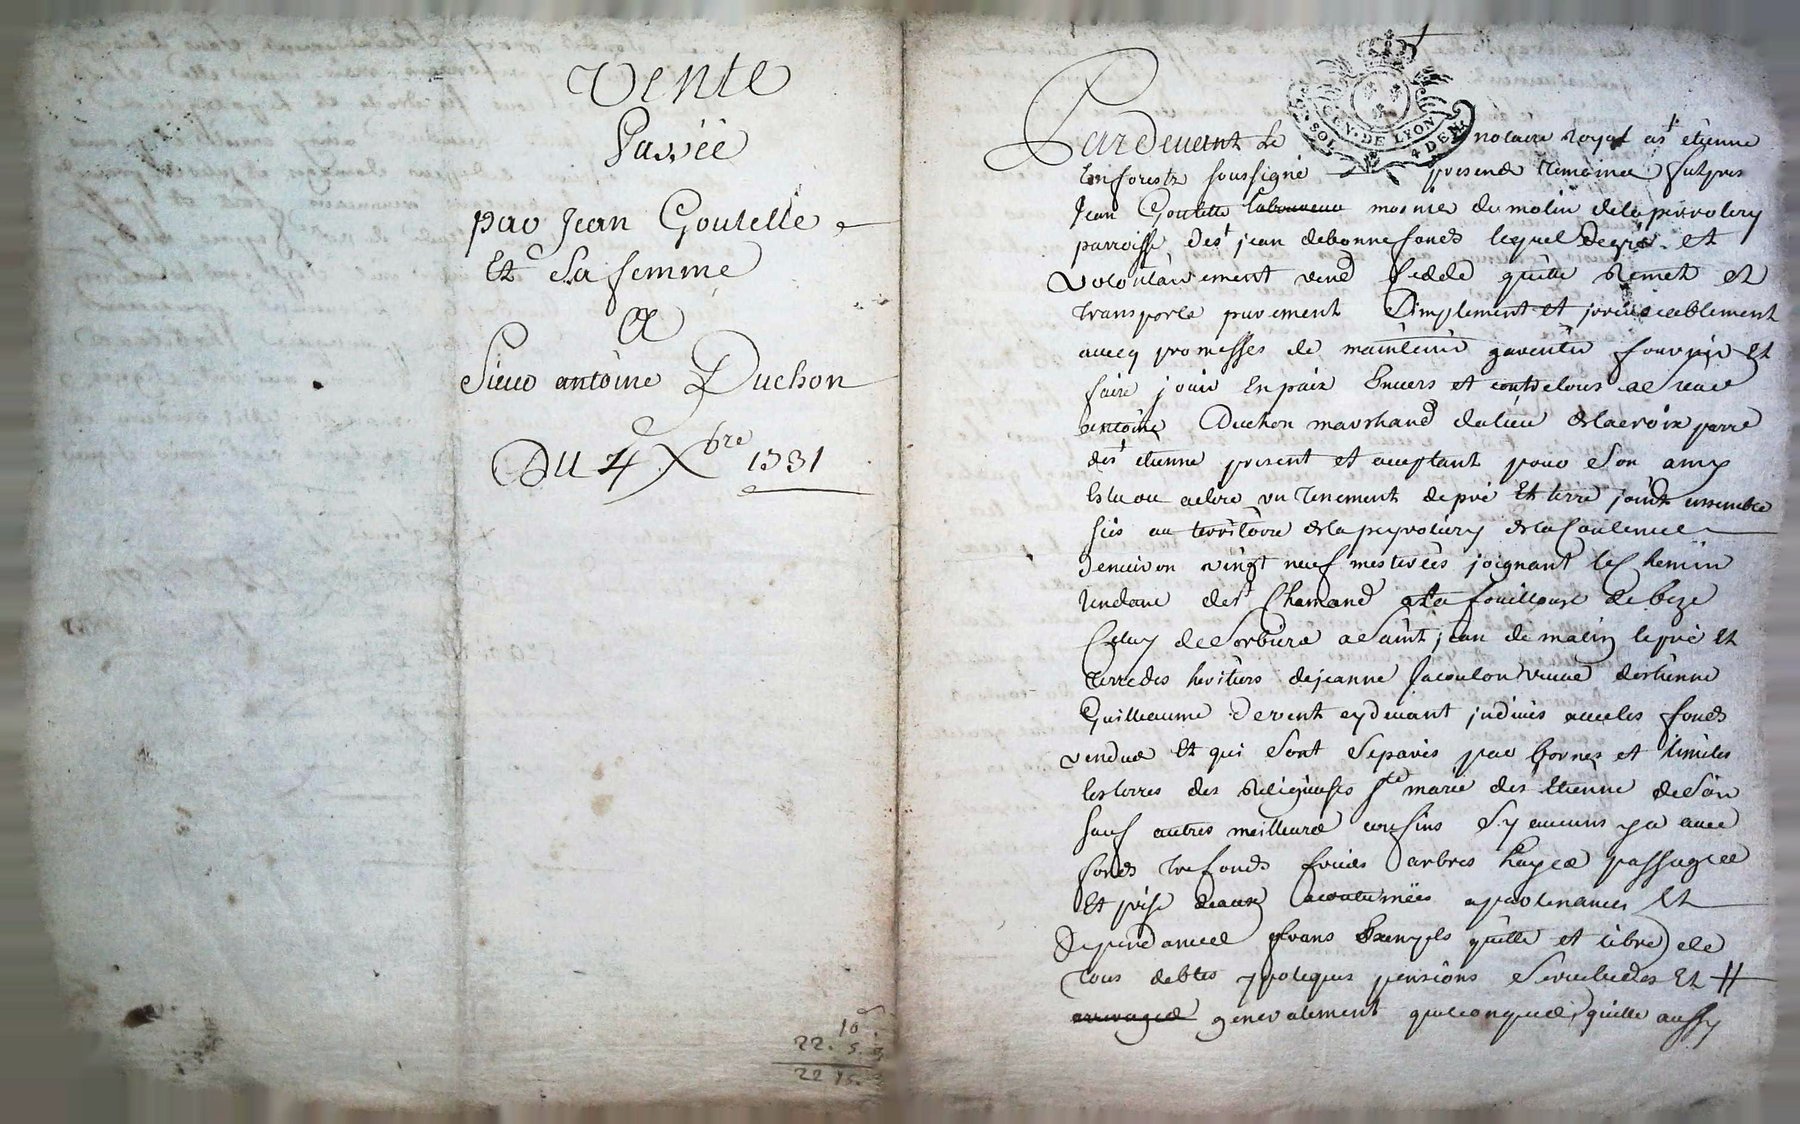 Vente
Passéé
par Jean Goutelle
Et Sa femme
A
Sieur antoine Duchon
Du 4 Xbre 1731
10
22. 5. 3
22 15. 3
GEN. DE LYON
SOL 4 DEN
Pardevant le notaire royal a st etienne
en forests soussigné presents temoins fut present
Jean Goutelle laboureur mosnier du molin de la peyrolery
parroisse de st jean de bonnefonds lequel de gré et
volontairement vend cedde quitte remet et
transporte purement Simplement et jrrevocablement
avecq promesses de maintenir garentir fournir Et
faire jouir En paix Envers et contre tous a Sieur
antoine Duchon marchand du lieu de la croix parre
de st etienne present et acceptant pour Son amy
Eslu ou a elire un tenement de pré Et terre joints ensemble
sis au territoire de la peyrolery
d'environ vingt neuf mesterées joignant le Chemin
tendant de st Chamand a la fouillouse de bize
Celuy de Sorbiers a Saint jean de matin le pré Et
terre des heritiers de jeanne Jacoulon veuve d'estienne
Guilleaume de vent cy devant jndivis avec les fonds
vendus Et qui Sont Separés par bornes et limites
les terres des Religieuses ste marie de st Etienne de Soir
sauf autres meilleurs confins Sy aucuns y a avec
fonds trefonds fruits arbres hayes passages
Et prise d'eaux acoutumées apartenances Et
Dependances frans Exempts quitte et libre de
tous debtes ypoteques pensions Servitudes Et #
arrerages generalement quelconques, quitte aussy